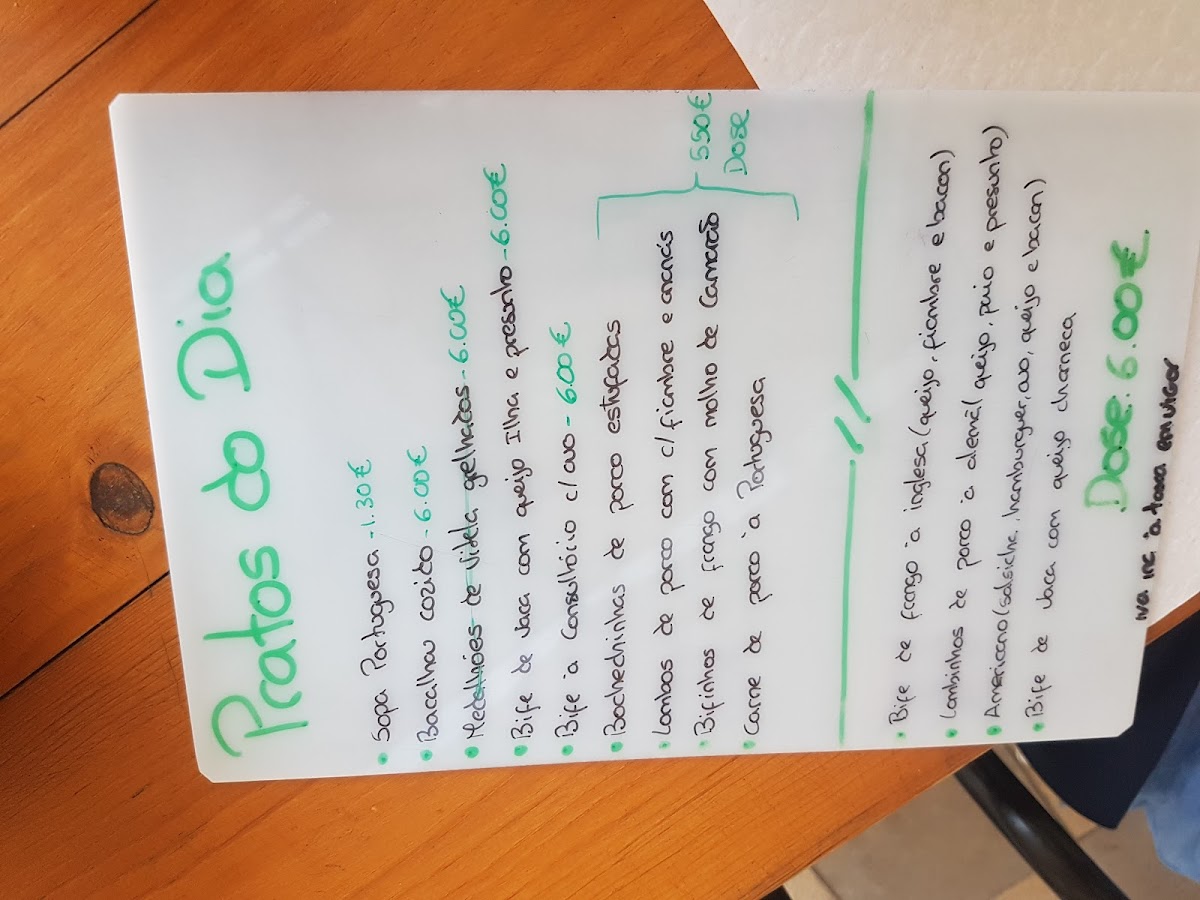 Pratos do Dia
• Sopa Portuguesa - 1.30€
• Bacalhau cozido - 6.00€
• Medalhões de vitela grelhados - 6.00€
• Bife de vaca com queijo Ilha e presunto - 6.00€
• Bife à Consultório c/ ovo - 6.00€
• Bochechinhas de porco estufadas
• Lombos de porco com c/ fiambre e ananás
• Bifinhos de frango com molho de Camarão
• Carne de porco à Portuguesa
5.50€
Dose
//
• Bife de frango à inglesa (queijo, fiambre e bacon)
• Lombinhos de porco à alemã (queijo, paio e presunto)
• Americano (salsicha, hamburguer, ovo, queijo e bacon)
• Bife de vaca com queijo charneca
Dose: 6.00€
Iva inc à taxa em vigor